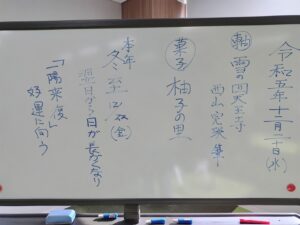 令和五年十二月二十日(水)
軸 雪の四天王寺
西山完瑛筆
菓子 柚子の里
本年
冬至 12/22(金)
翌日から日が長くなり
「一陽来復」
好運に向う